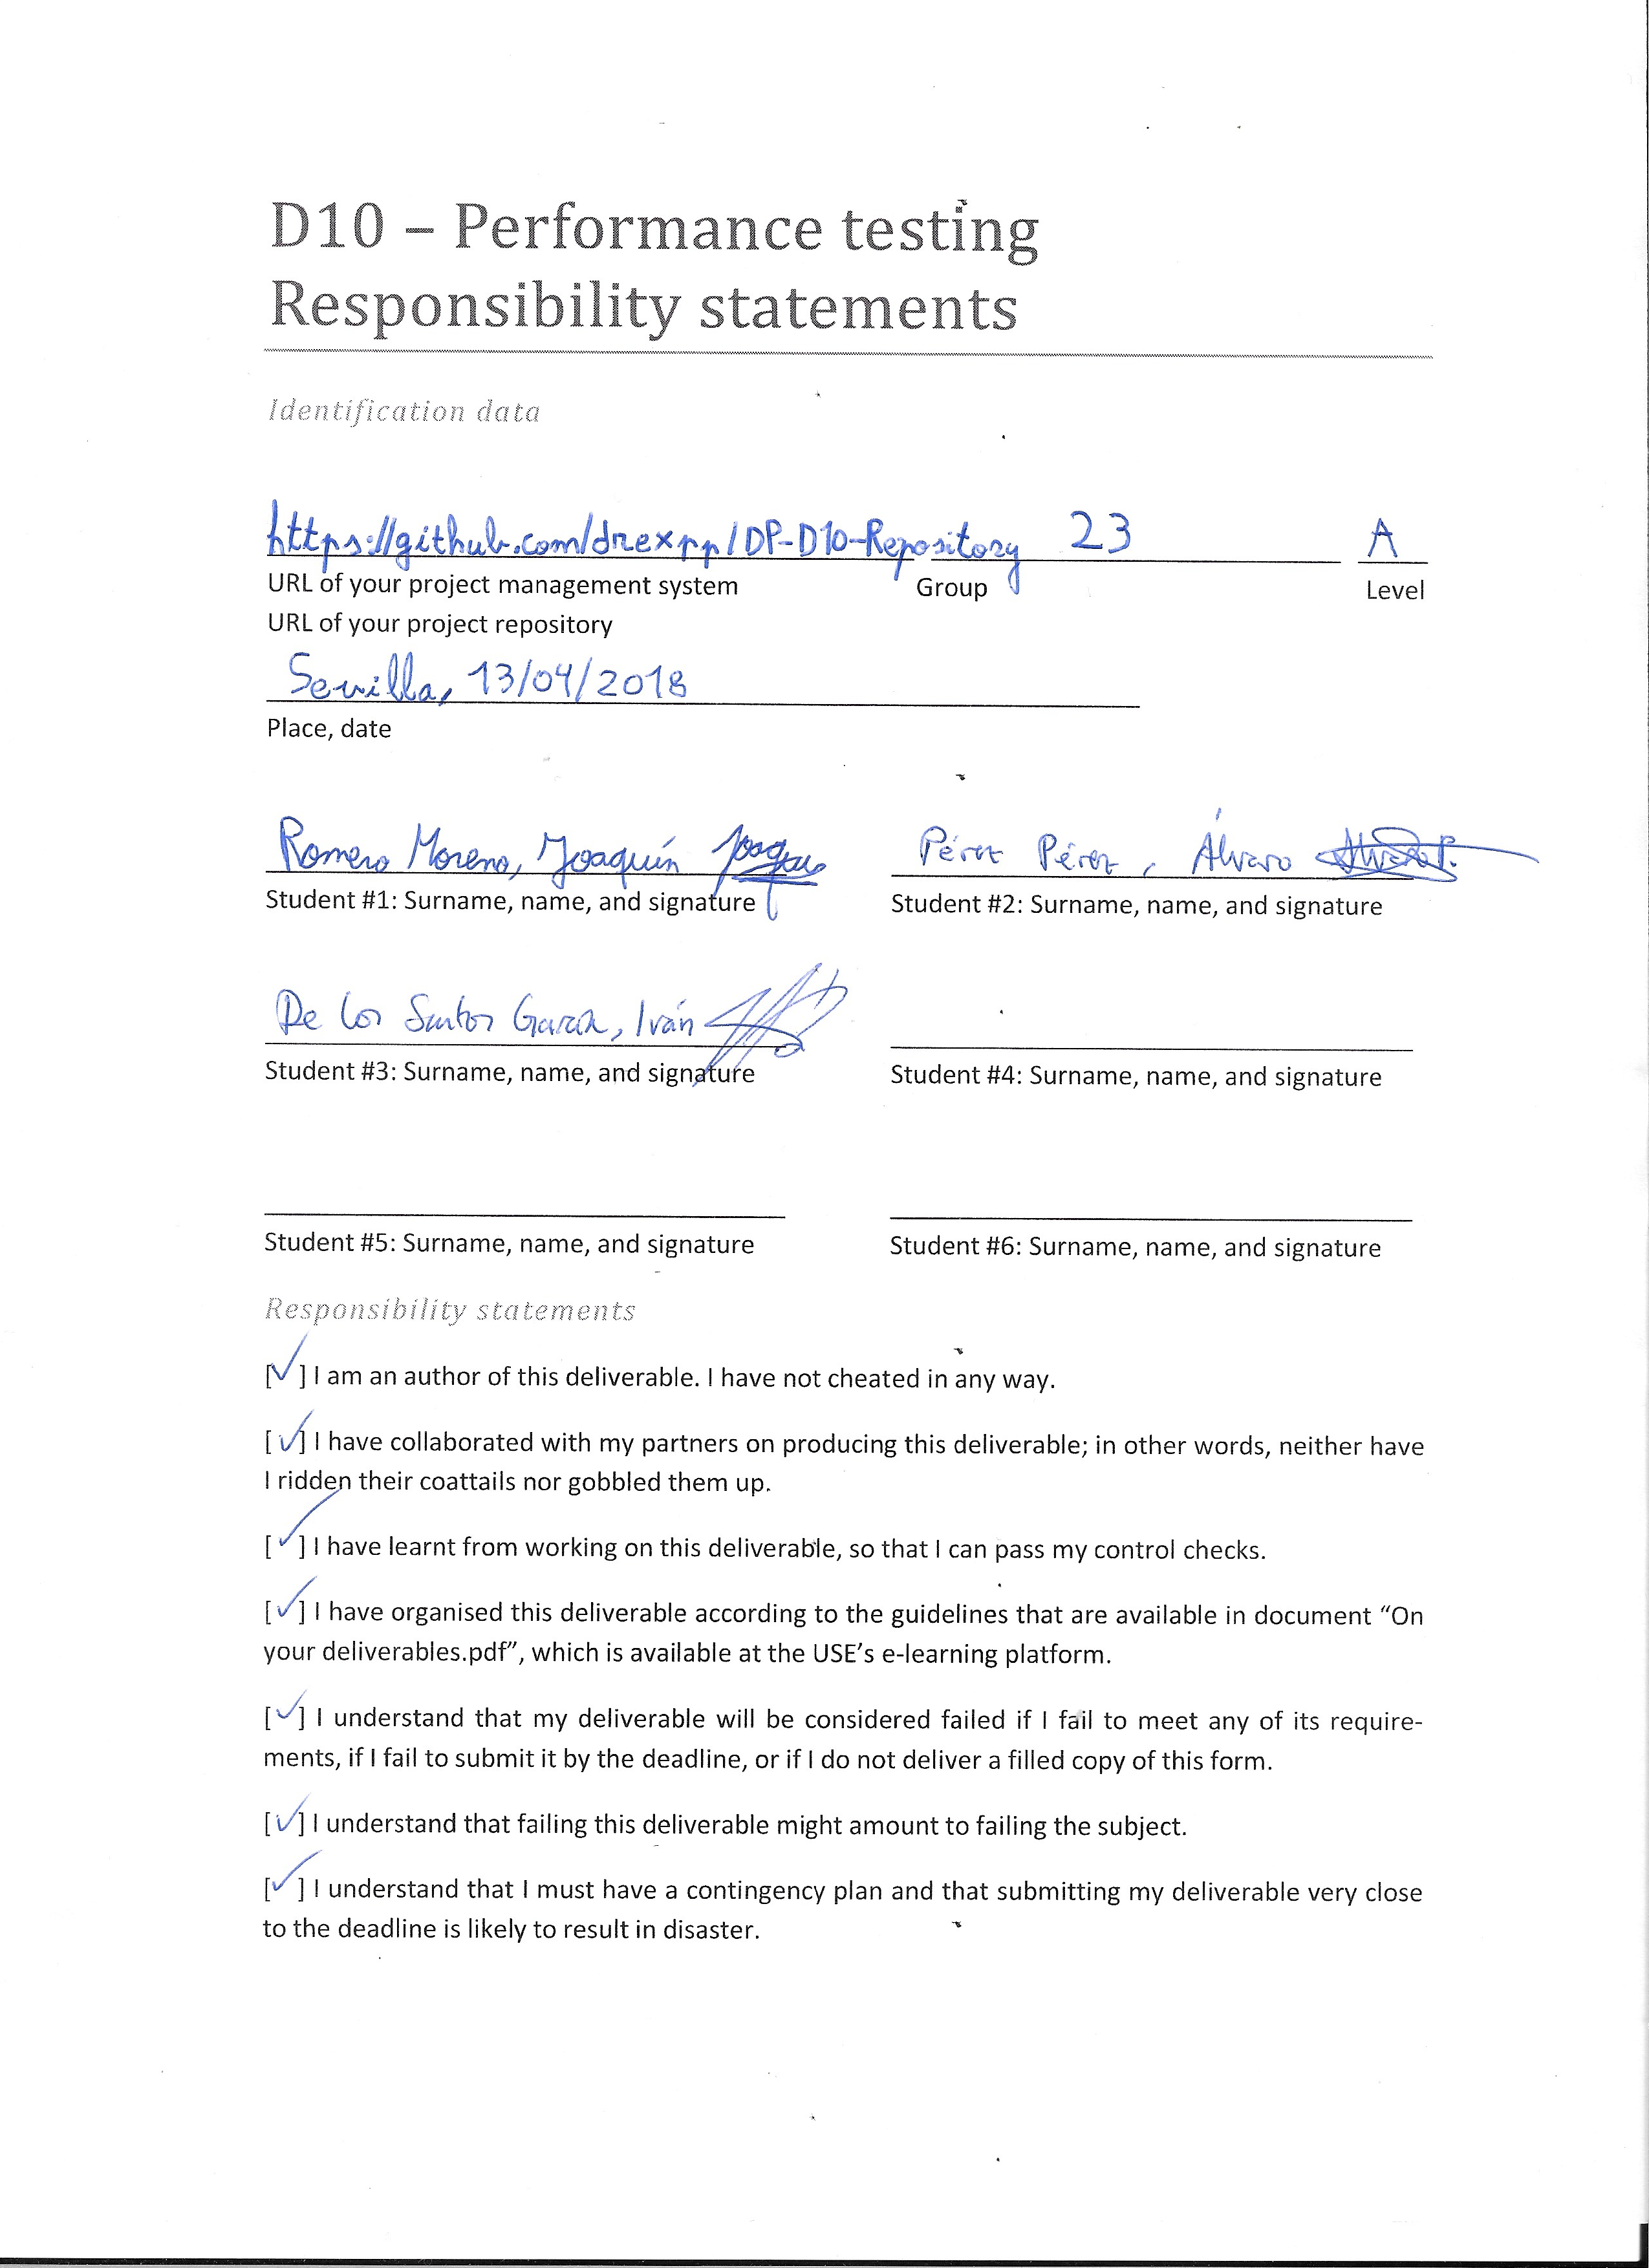 D10 – Performance testing
Responsibility statements
Identification data
https://github.com/drexpp/DP-D10-Repository 23 A
URL of your project management system Group Level
URL of your project repository
Sevilla, 13/04/2018
Place, date
Romero Moreno, Joaquín Joaquín Pérez Pérez, Álvaro
Student #1: Surname, name, and signature Student #2: Surname, name, and signature
De los Santos García, Iván
Student #3: Surname, name, and signature Student #4: Surname, name, and signature
Student #5: Surname, name, and signature Student #6: Surname, name, and signature
Responsibility statements
[✓] I am an author of this deliverable. I have not cheated in any way.
[✓] I have collaborated with my partners on producing this deliverable; in other words, neither have
I ridden their coattails nor gobbled them up.
[✓] I have learnt from working on this deliverable, so that I can pass my control checks.
[✓] I have organised this deliverable according to the guidelines that are available in document “On
your deliverables.pdf”, which is available at the USE’s e-learning platform.
[✓] I understand that my deliverable will be considered failed if I fail to meet any of its require-
ments, if I fail to submit it by the deadline, or if I do not deliver a filled copy of this form.
[✓] I understand that failing this deliverable might amount to failing the subject.
[✓] I understand that I must have a contingency plan and that submitting my deliverable very close
to the deadline is likely to result in disaster.